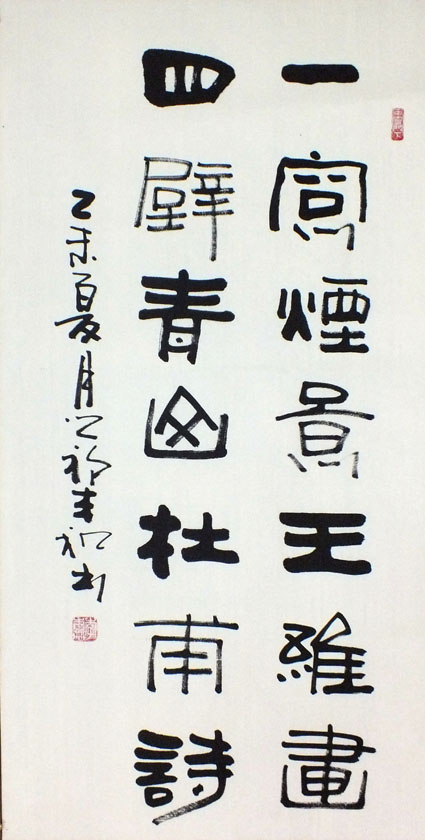 一窗煙景王維畫
四壁青山杜甫詩
乙未夏月